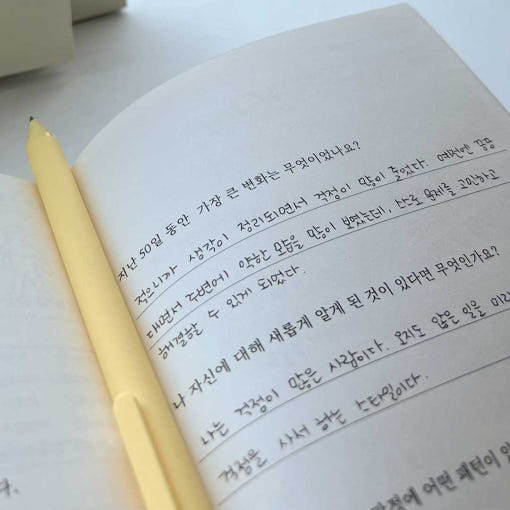 지난 50일 동안 가장 큰 변화는 무엇이었나요?
적으니까 생각이 정리되면서 걱정이 많이 줄었다. 예전엔 끙끙
대면서 주변에 약한 모습을 많이 보였는데, 스스로 문제를 고민하고
해결할 수 있게 되었다.
나 자신에 대해 새롭게 알게 된 것이 있다면 무엇인가요?
나는 걱정이 많은 사람이다. 오지도 않은 일을 미리
걱정을 사서 하는 스타일이다.
어떤 패턴이
다.